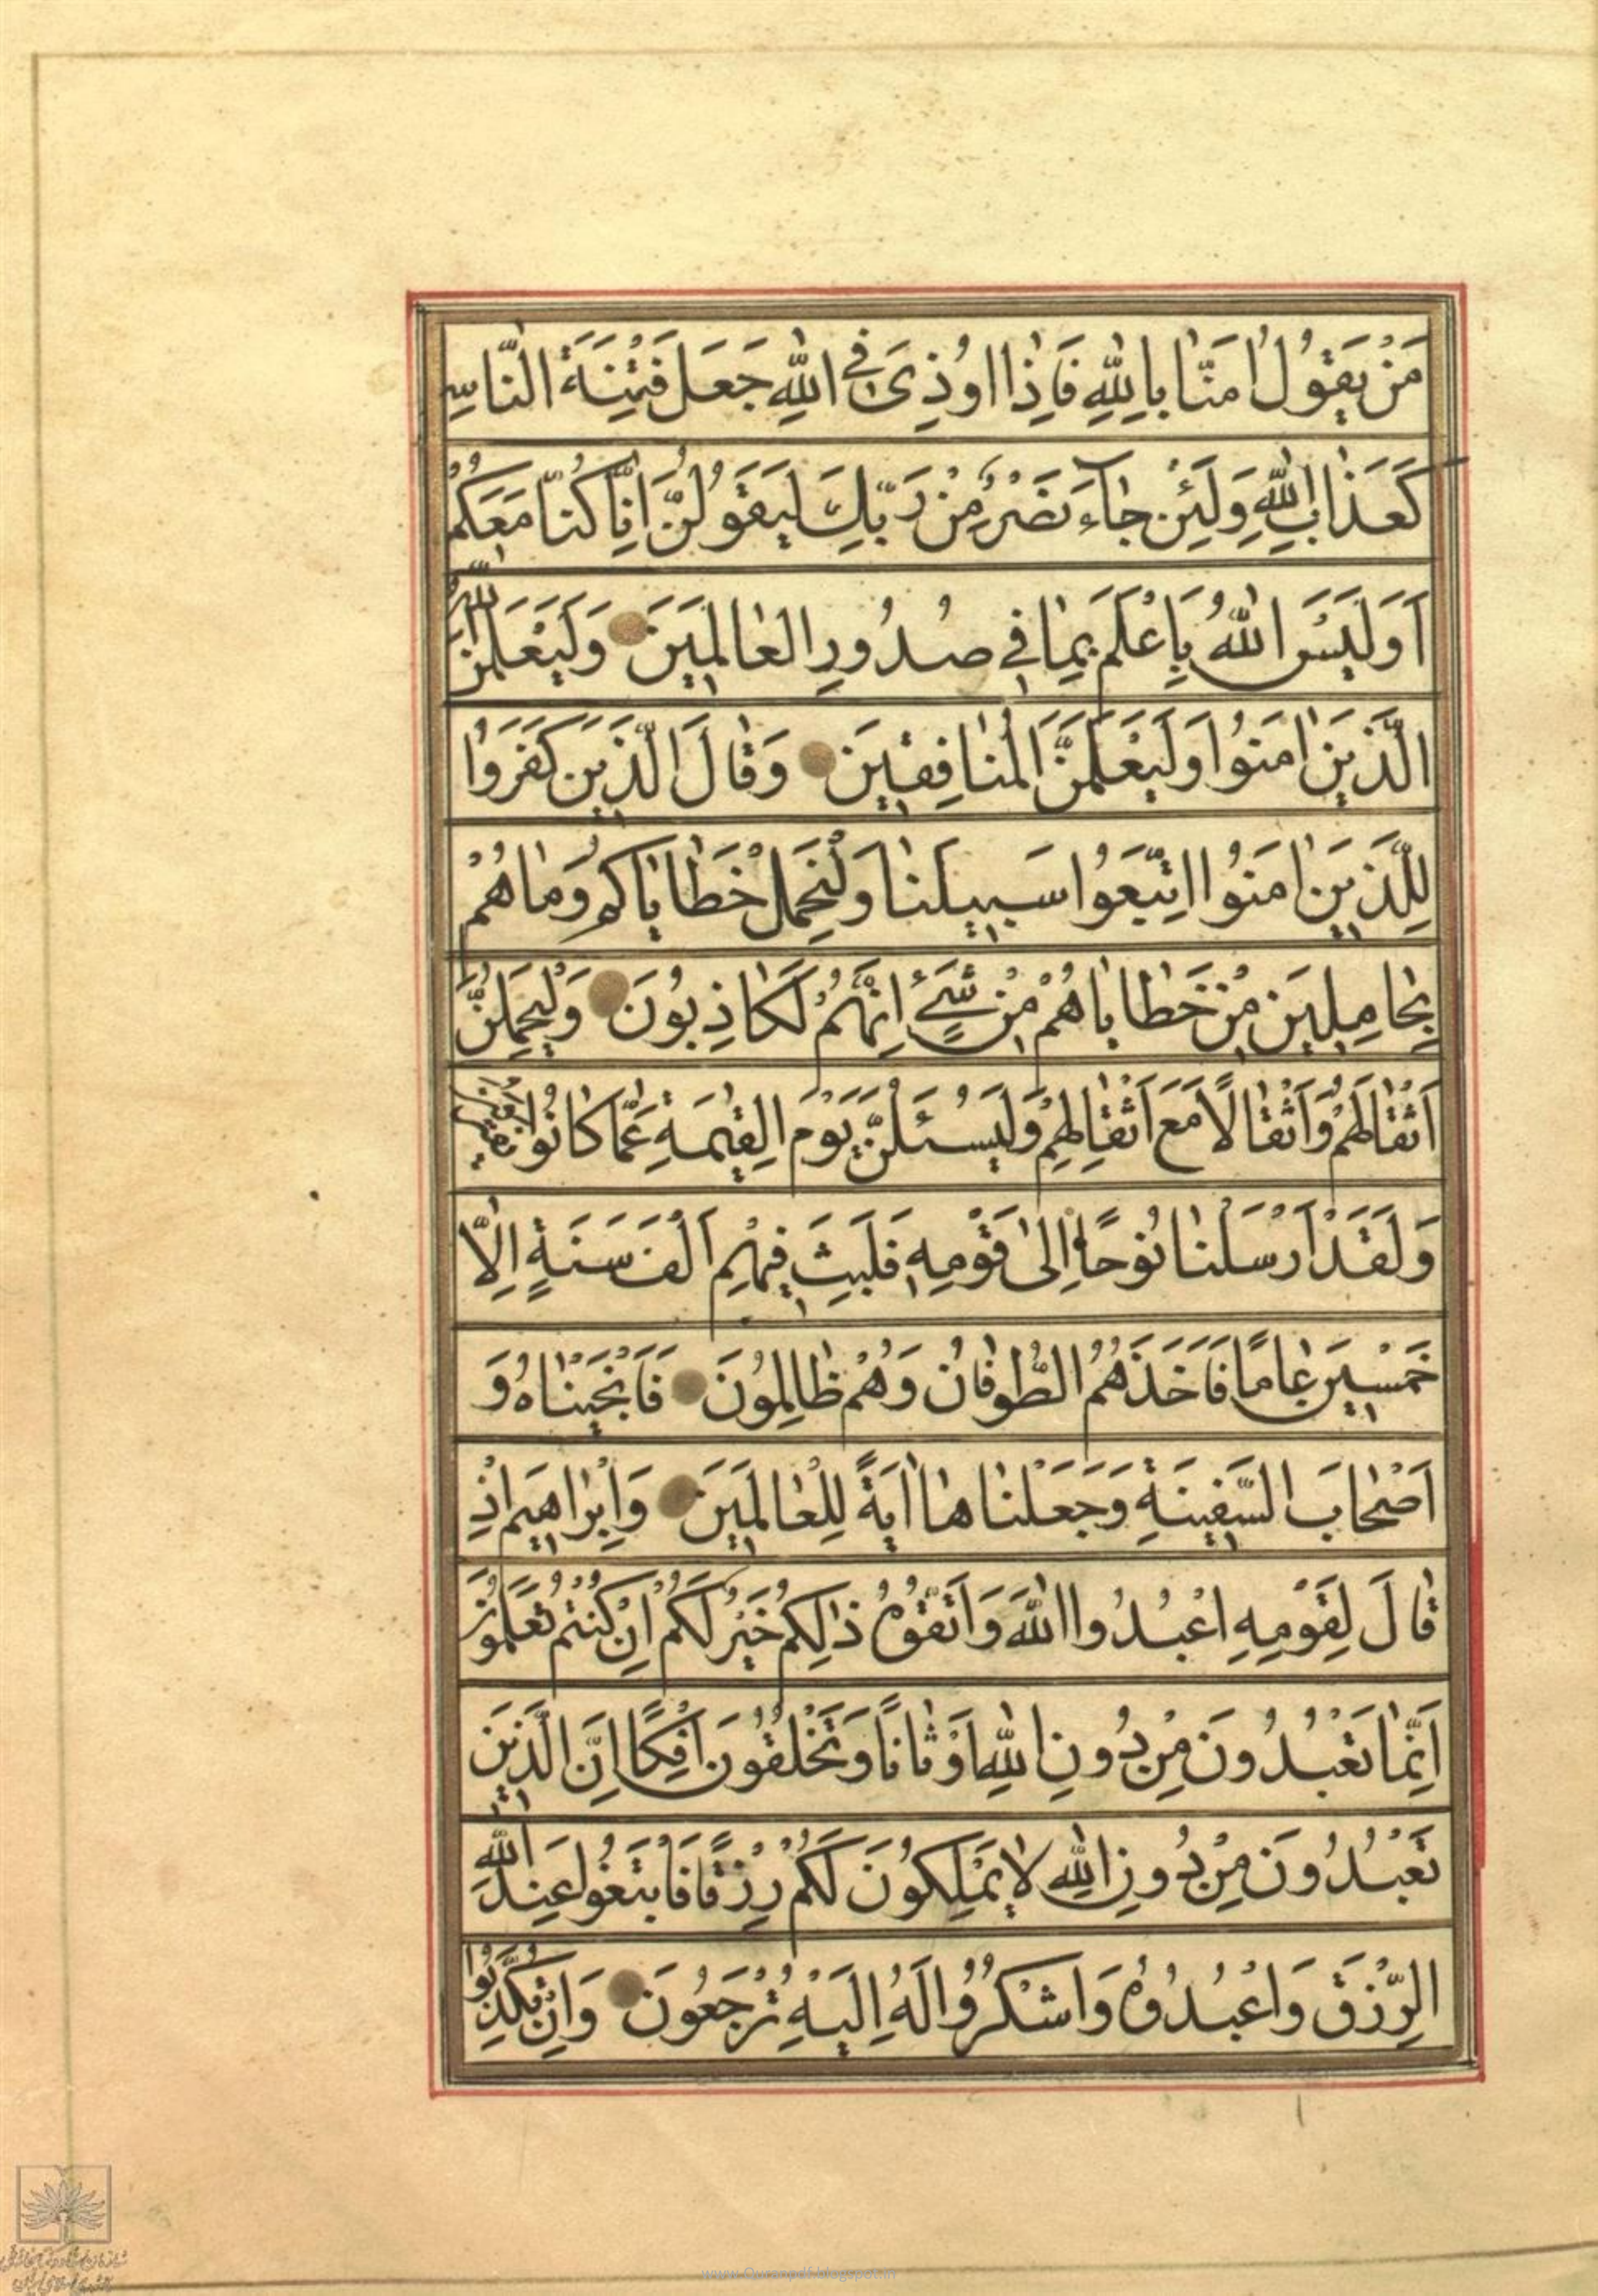 مَنْ يَقُولُ اٰمَنَّا بِاللّٰهِ فَاِذَا اُوذِىَ فِى اللّٰهِ جَعَلَ فِتْنَةَ النَّاسِ
كَعَذَابِ اللّٰهِ وَلَئِنْ جَاءَ نَصْرٌ مِنْ رَبِّكَ لَيَقُولُنَّ اِنَّا كُنَّا مَعَكُمْ
اَوَلَيْسَ اللّٰهُ بِاَعْلَمَ بِمَا فِي صُدُورِ الْعَالَمِينَ وَلَيَعْلَمَنَّ اللّٰهُ
الَّذِينَ اٰمَنُوا وَلَيَعْلَمَنَّ الْمُنَافِقِينَ وَقَالَ الَّذِينَ كَفَرُوا
لِلَّذِينَ اٰمَنُوا اتَّبِعُوا سَبِيلَنَا وَلْنَحْمِلْ خَطَايَاكُمْ وَمَا هُمْ
بِحَامِلِينَ مِنْ خَطَايَاهُمْ مِنْ شَيْءٍ اِنَّهُمْ لَكَاذِبُونَ وَلَيَحْمِلُنَّ
اَثْقَالَهُمْ وَاَثْقَالًا مَعَ اَثْقَالِهِمْ وَلَيُسْئَلُنَّ يَوْمَ الْقِيٰمَةِ عَمَّا كَانُوا يَفْتَرُونَ
وَلَقَدْ اَرْسَلْنَا نُوحًا اِلىٰ قَوْمِهِ فَلَبِثَ فِيهِمْ اَلْفَ سَنَةٍ اِلَّا
خَمْسِينَ عَامًا فَاَخَذَهُمُ الطُّوفَانُ وَهُمْ ظَالِمُونَ فَاَنْجَيْنَاهُ وَ
اَصْحَابَ السَّفِينَةِ وَجَعَلْنَاهَا اٰيَةً لِلْعَالَمِينَ وَاِبْرَاهِيمَ اِذْ
قَالَ لِقَوْمِهِ اعْبُدُوا اللّٰهَ وَاتَّقُوهُ ذٰلِكُمْ خَيْرٌ لَكُمْ اِنْ كُنْتُمْ تَعْلَمُونَ
اِنَّمَا تَعْبُدُونَ مِنْ دُونِ اللّٰهِ اَوْثَانًا وَتَخْلُقُونَ اِفْكًا اِنَّ الَّذِينَ
تَعْبُدُونَ مِنْ دُونِ اللّٰهِ لَا يَمْلِكُونَ لَكُمْ رِزْقًا فَابْتَغُوا عِنْدَ اللّٰهِ
الرِّزْقَ وَاعْبُدُوهُ وَاشْكُرُوا لَهُ اِلَيْهِ تُرْجَعُونَ وَاِنْ تُكَذِّبُوا
www.Quranpdf.blogspot.in